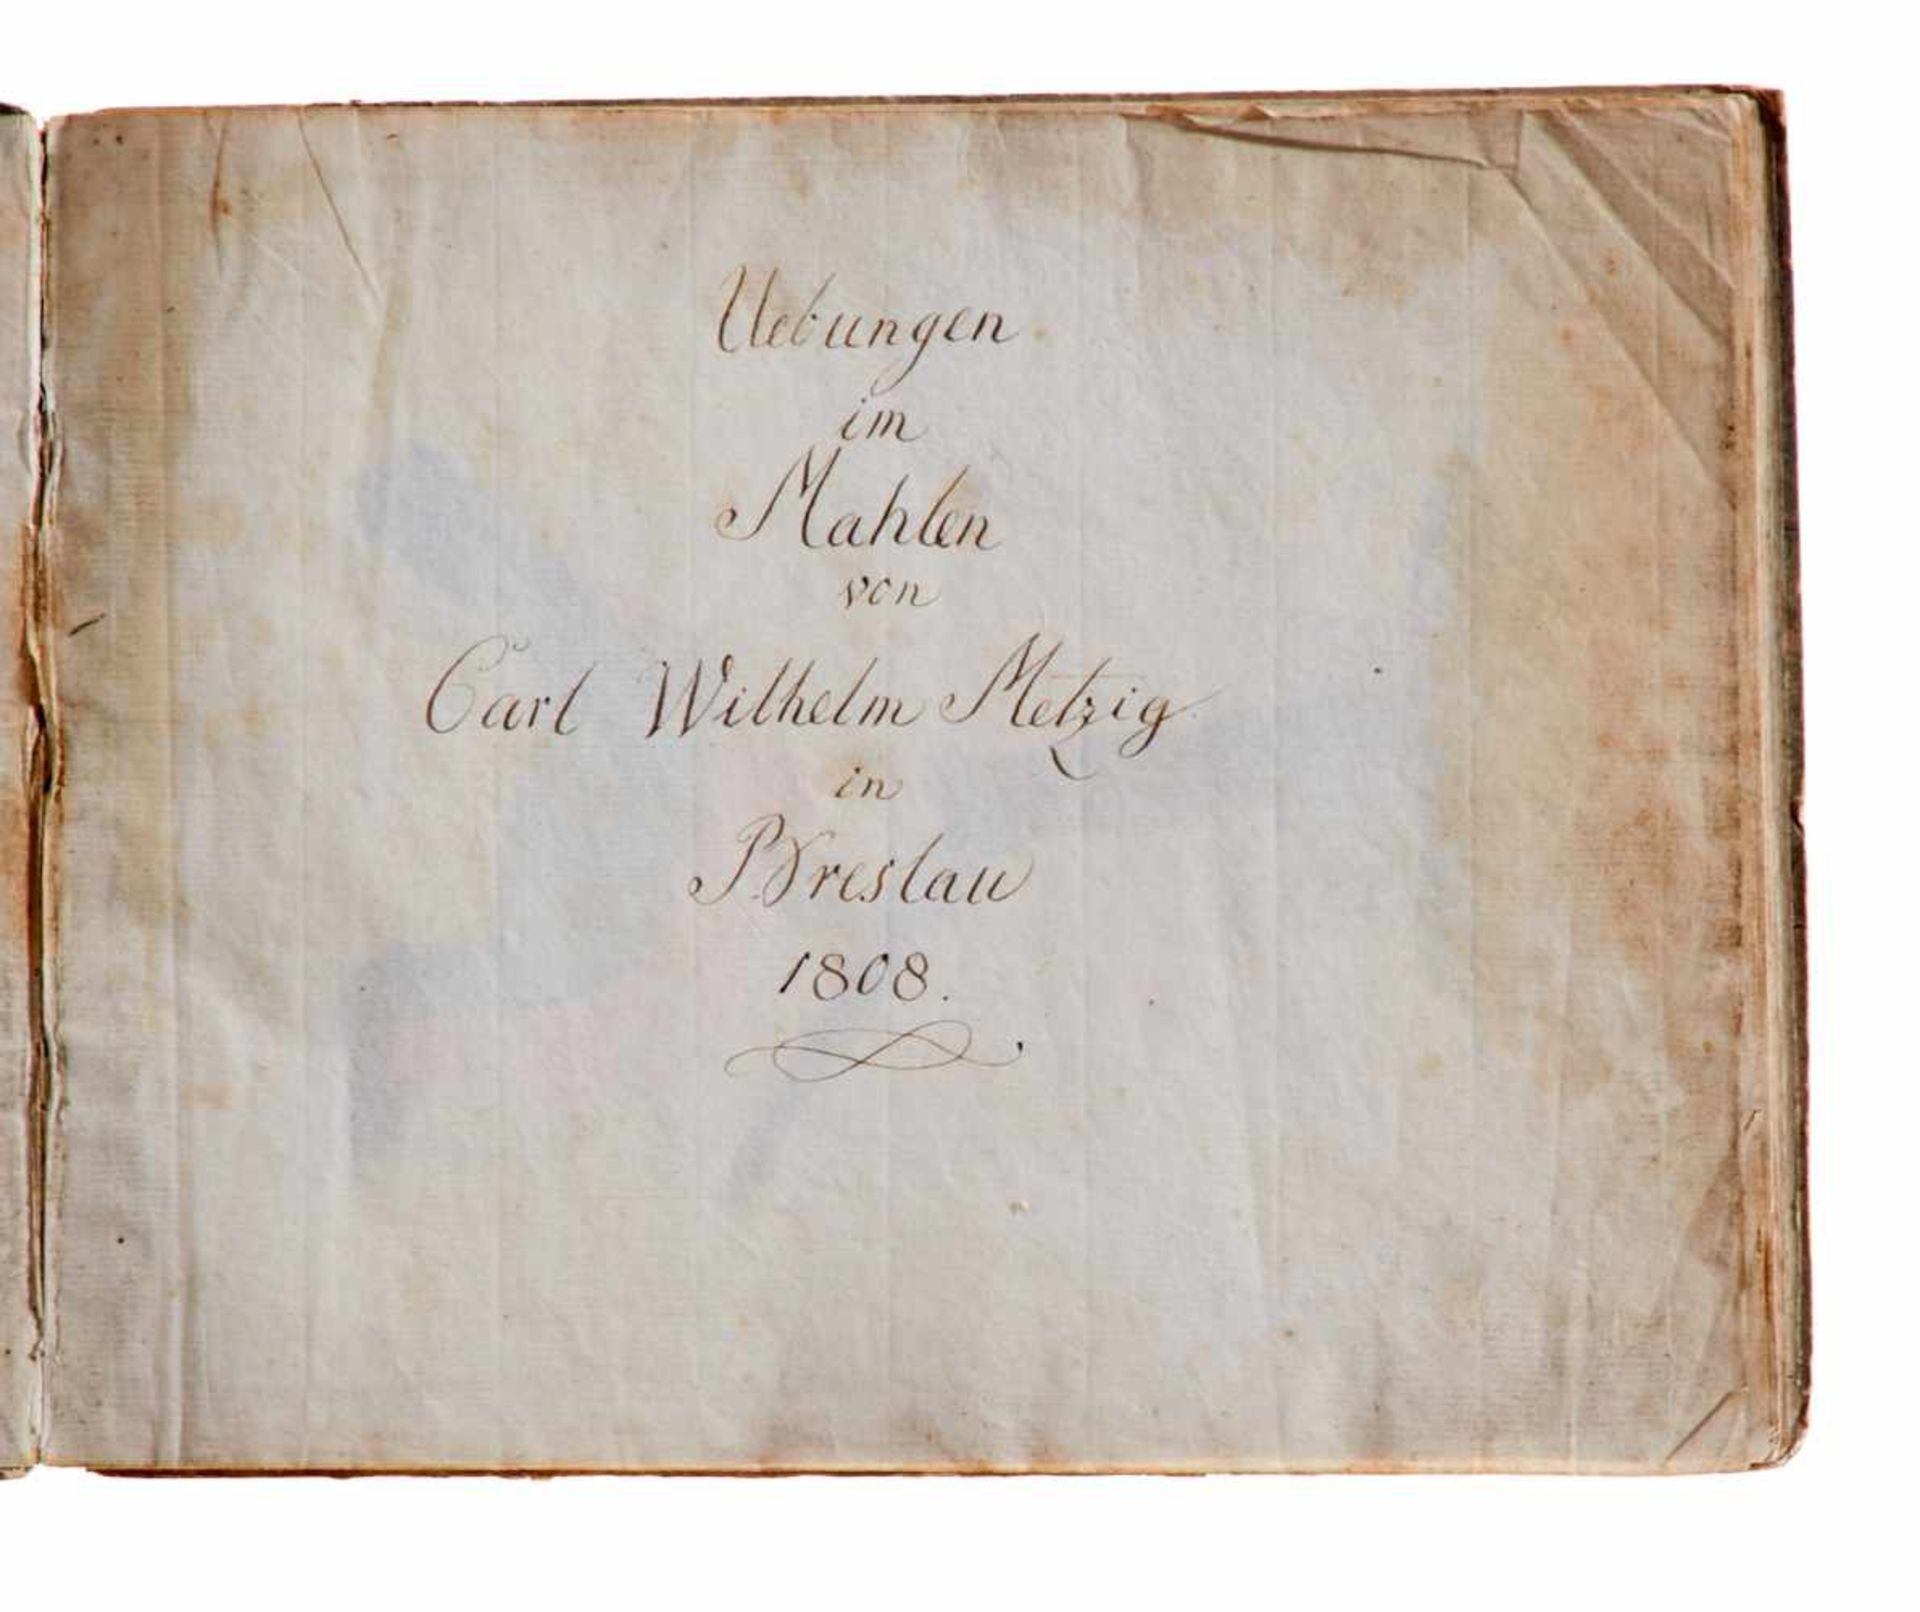 Uebungen
im
Mahlen
von
Carl Wilhelm Metzig
in
Breslau
1808.